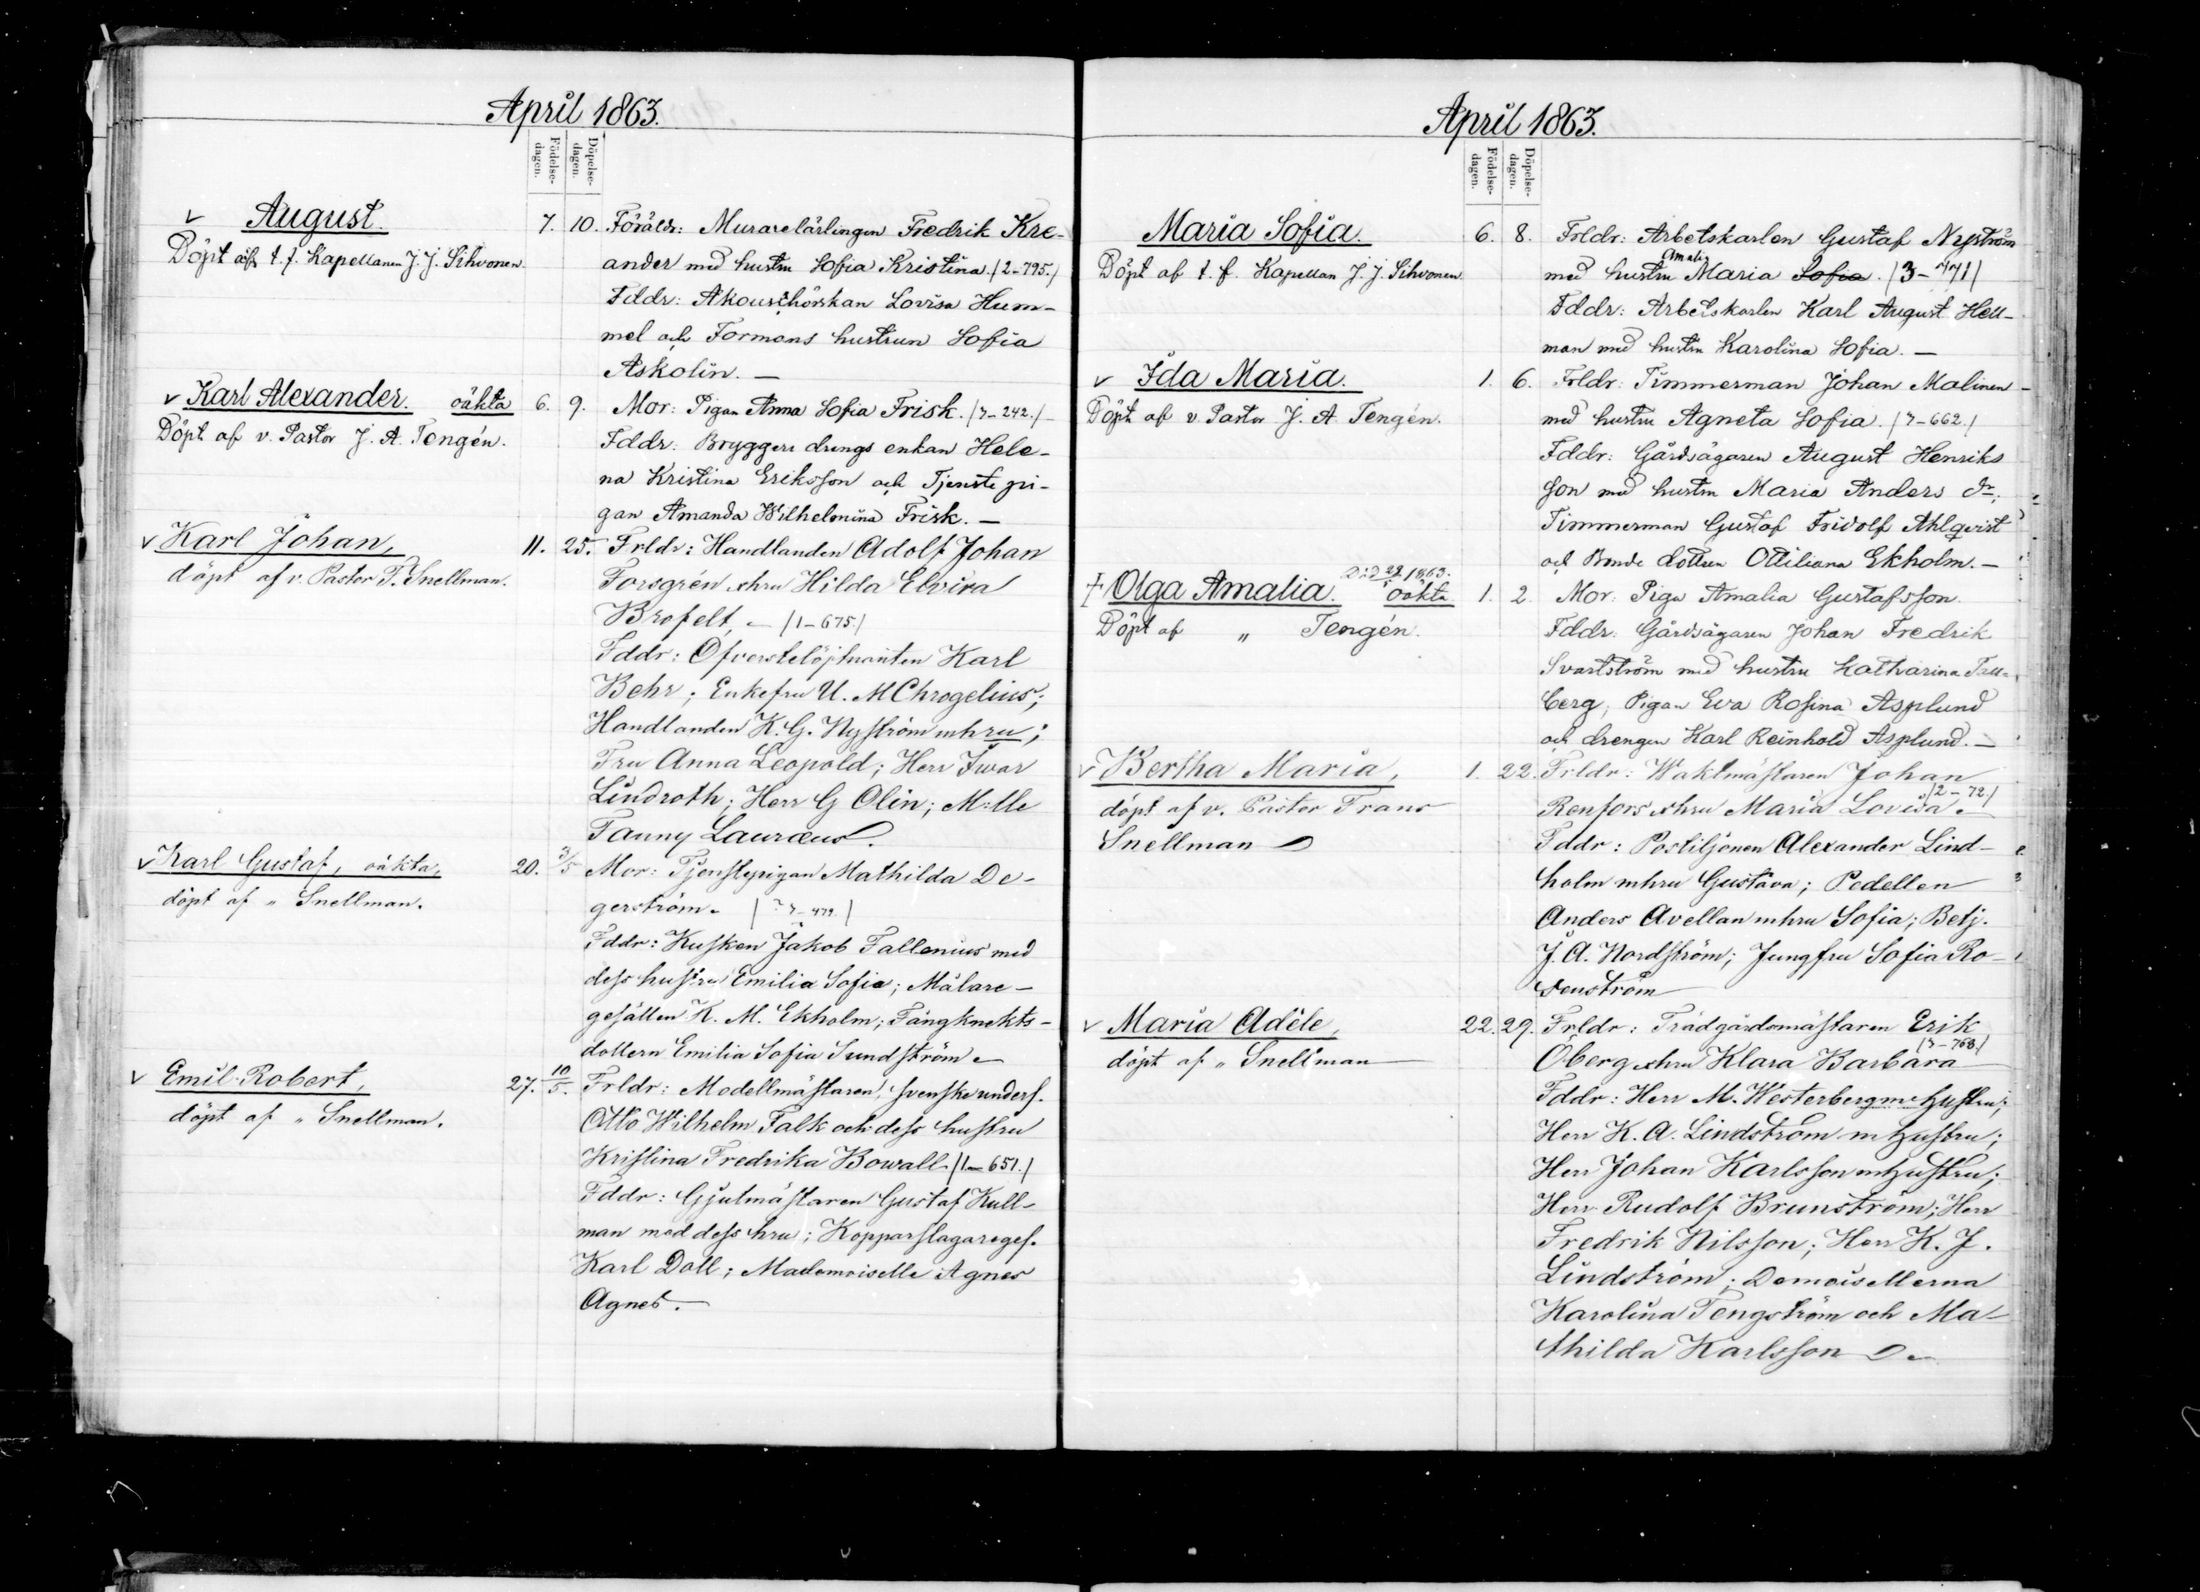 April 1863.
Födelse-dagen.
Döpelse-dagen.
August.
Döpt af t. f. Kapellanen J. J. Sihvonen.
7. 10. Föräldr: Murarelärlingen Fredrik Kre-
ander med hustru Sofia Kristina. /2-795./
Fddr: Akouschörskan Lovisa Hum-
mel och Formans hustrun Sofia
Askolin. —
Karl Alexander. oäkta
Döpt af v. Pastor J. A. Tengén.
6. 9. Mor: Pigan Anna Sofia Frisk. /7-242./
Fddr: Bryggeri drengs enkan Hele-
na Kristina Eriksson och Tjenste pi-
gan Amanda Wilhelmina Frisk. —
Karl Johan,
döpt af v. Pastor F. Snellman.
11. 25. Frldr: Handlanden Adolf Johan
Forsgrén o. hru Hilda Elvira
Brofelt, — /1-675./
Fddr: Öfverstelöjtnanten Karl
Behr; Enkefru U. M Chrogelius;
Handlanden K. G. Nyström m hru;
Fru Anna Leopold; Herr Iwar
Lindroth; Herr G Olin; M:lle
Fanny Lauræus.
Karl Gustaf, oäkta,
döpt af „ Snellman.
20. 3/5 Mor: Tjenstepigan Mathilda De-
gerström. /? 7-479./
Fddr: Kusken Jakob Fallenius med
dess hustru Emilia Sofia; Målare-
gesällen K. M. Ekholm; Fångknekts-
dottern Emilia Sofia Sundström.
Emil Robert,
döpt af „ Snellman.
27. 10/5. Frldr: Modellmästaren, svenske unders.
Otto Wilhelm Falk och dess hustru
Kristina Fredrika Bowall /1-651./
Fddr: Gjutmästaren Gustaf Kull-
man med dess hru; Kopparslagareges.
Karl Doll; Mademoiselle Agnes
Agnes.
April 1863.
Födelse-dagen.
Döpelse-dagen.
Maria Sofia.
Döpt af t. f. Kapellan J. J. Sihvonen
6. 8. Frldr: Arbetskarlen Gustaf Nyström
Amalia
med hustru Maria Sofia. /3-771/
Fddr: Arbetskarlen Karl August Hell-
man med hustru Karolina Sofia. —
Ida Maria.
Döpt af v. Pastor J. A. Tengén.
1. 6. Frldr: Timmerman Johan Malinen
med hustru Agneta Sofia. /7-662./
Fddr: Gårdsägaren August Henriks
son med hustru Maria Anders dr;
Timmerman Gustaf Fridolf Ahlqvist
och Bonde dottren Ottiliana Ekholm. —
Död 22/5 1863.
Olga Amalia. oäkta
Döpt af „ Tengén.
1. 2. Mor: Piga Amalia Gustafsson.
Fddr: Gårdsägaren Johan Fredrik
Svartström med hustru Katharina Tall-
berg, Pigan Eva Rosina Asplund
och drengen Karl Reinhold Asplund. —
Bertha Maria,
döpt af v. Pastor Frans
Snellman
1. 22. Frldr: Waktmästaren Johan
/2-72/
Renfors o. hru Maria Lovisa.
Fddr: Postiljonen Alexander Lind-
holm m hru Gustava; Pedellen
Anders Avellan m hru Sofia; Betj.
J. A. Nordström; Jungfru Sofia Ro-
senström
Maria Adèle,
döpt af „ Snellman
22. 29. Frldr: Trädgårdsmästaren Erik
/7-768./
Öberg o. hru Klara Barbara
Fddr: Herr M. Westerberg m hustru;
Herr K. A. Lindström m hustru;
Herr Johan Karlsson m hustru;
Herr Rudolf Brunström; Herr
Fredrik Nilsson; Herr K. J.
Lindström; Demoisellerna
Karolina Tengström och Ma-
thilda Karlsson